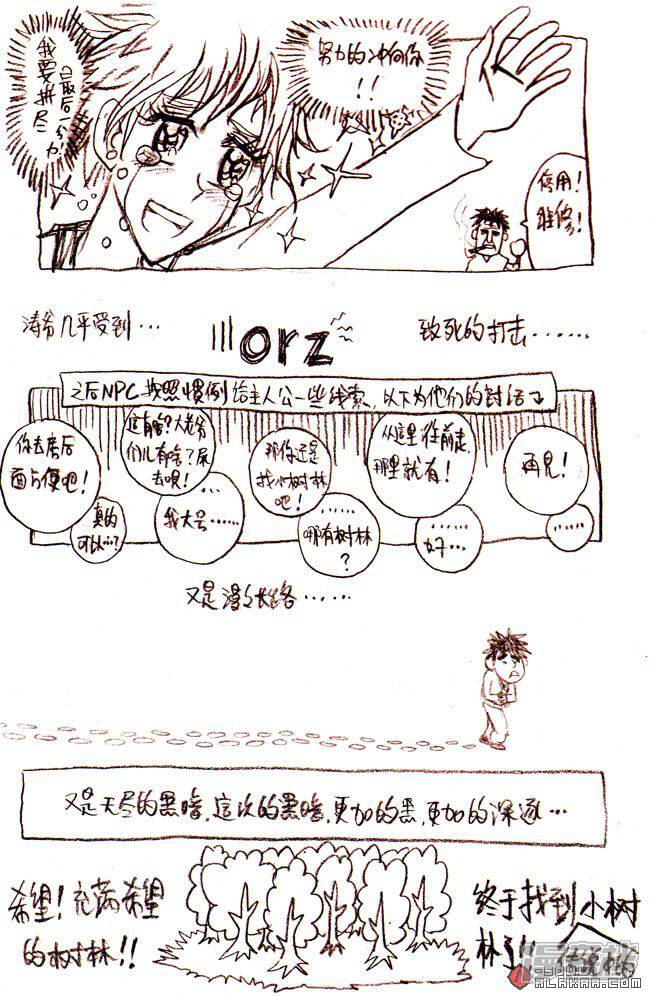 我要拼尽
最后一分力
努力的冲向你
!!
停用!
维修!
涛爷几乎受到...
orz
致死的打击......
之后NPC按照惯例给主人公一些线索,以下为他们的討话了
你去房后
面方便吧!
真的
可以...?
這有啥?大老爷
们儿有啥了尿
去呗!
我大号......
那你还是
找小树林
吧!
哪有树林
?
从這里往前走,
那里就有!
...
好...
再見!
......
又是漫长路......
又是无尽的黑暗,這次的黑暗,更加的黑,更加的深邃...
希望!充满希望
的树林!!
终于找到小树
林了!!